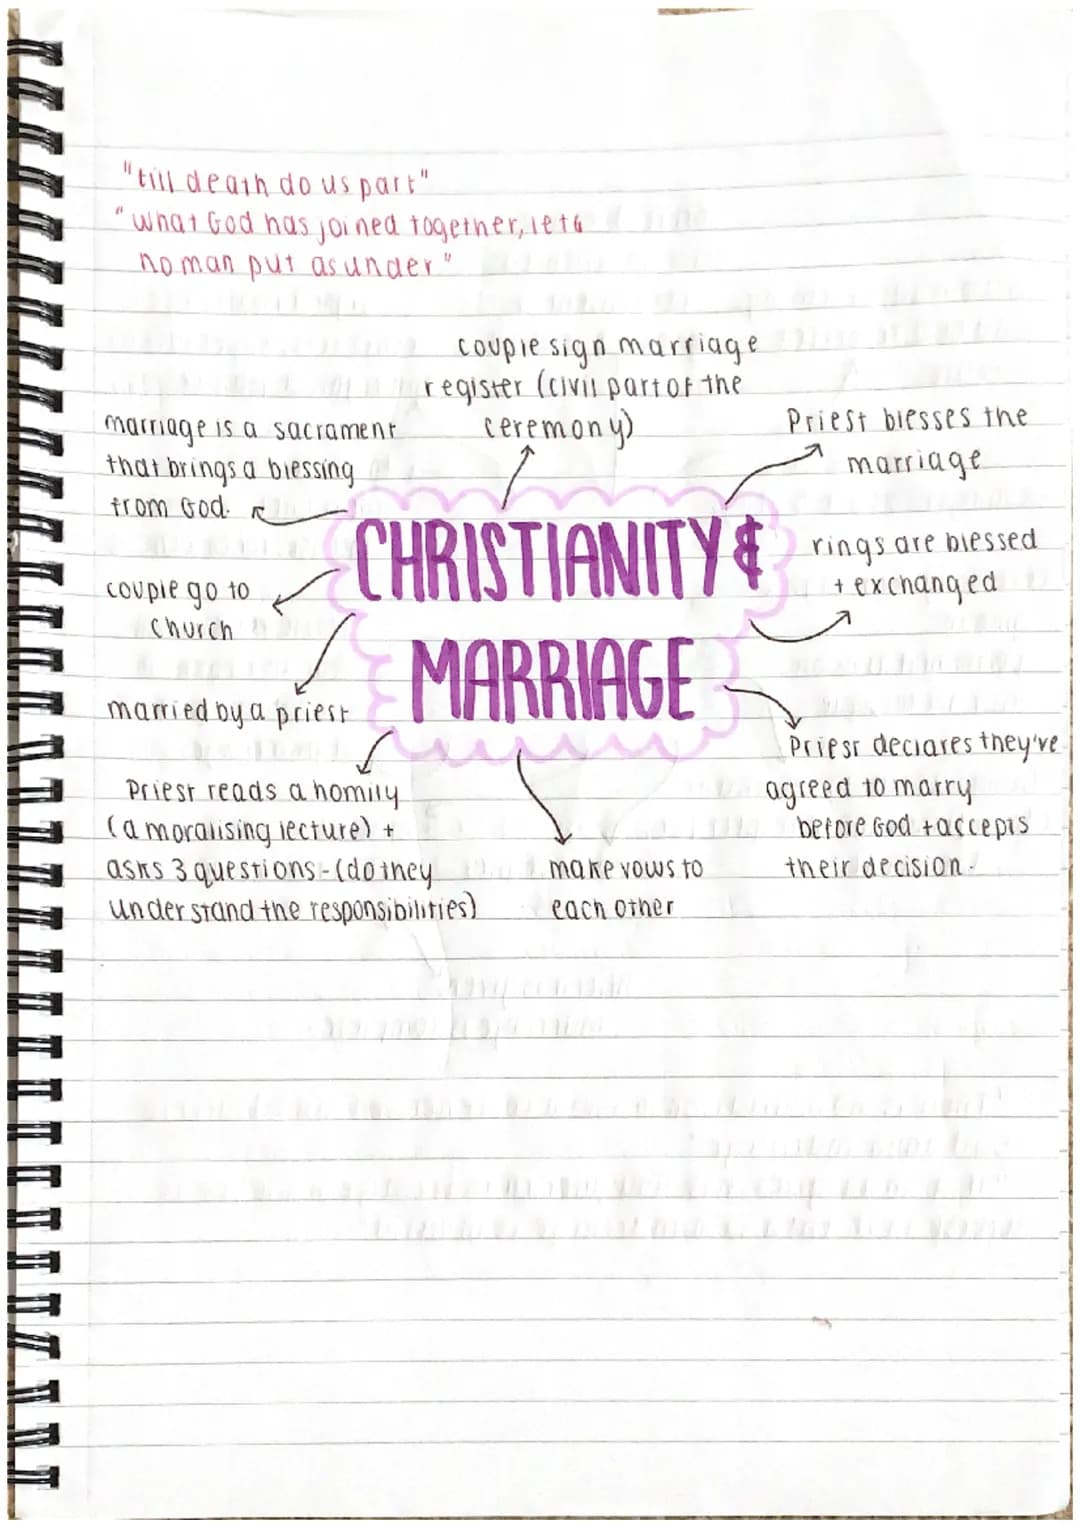 "till death do us part"
"what God has joined together, let
no man put asunder"
couple sign marriage
register (civil part of the
ceremony)
marriage is a sacrament
that brings a blessing
from God.
Priest blesses the
marriage
CHRISTIANITY &
MARRIAGE
rings are blessed
+ exchanged
couple go to
church
married by a priest
Priest declares they've
agreed to marry
before God + accepts
their decision.
Priest reads a homily
(a moralising lecture) +
asks 3 questions - (do they
understand the responsibilities)
make vows to
each other